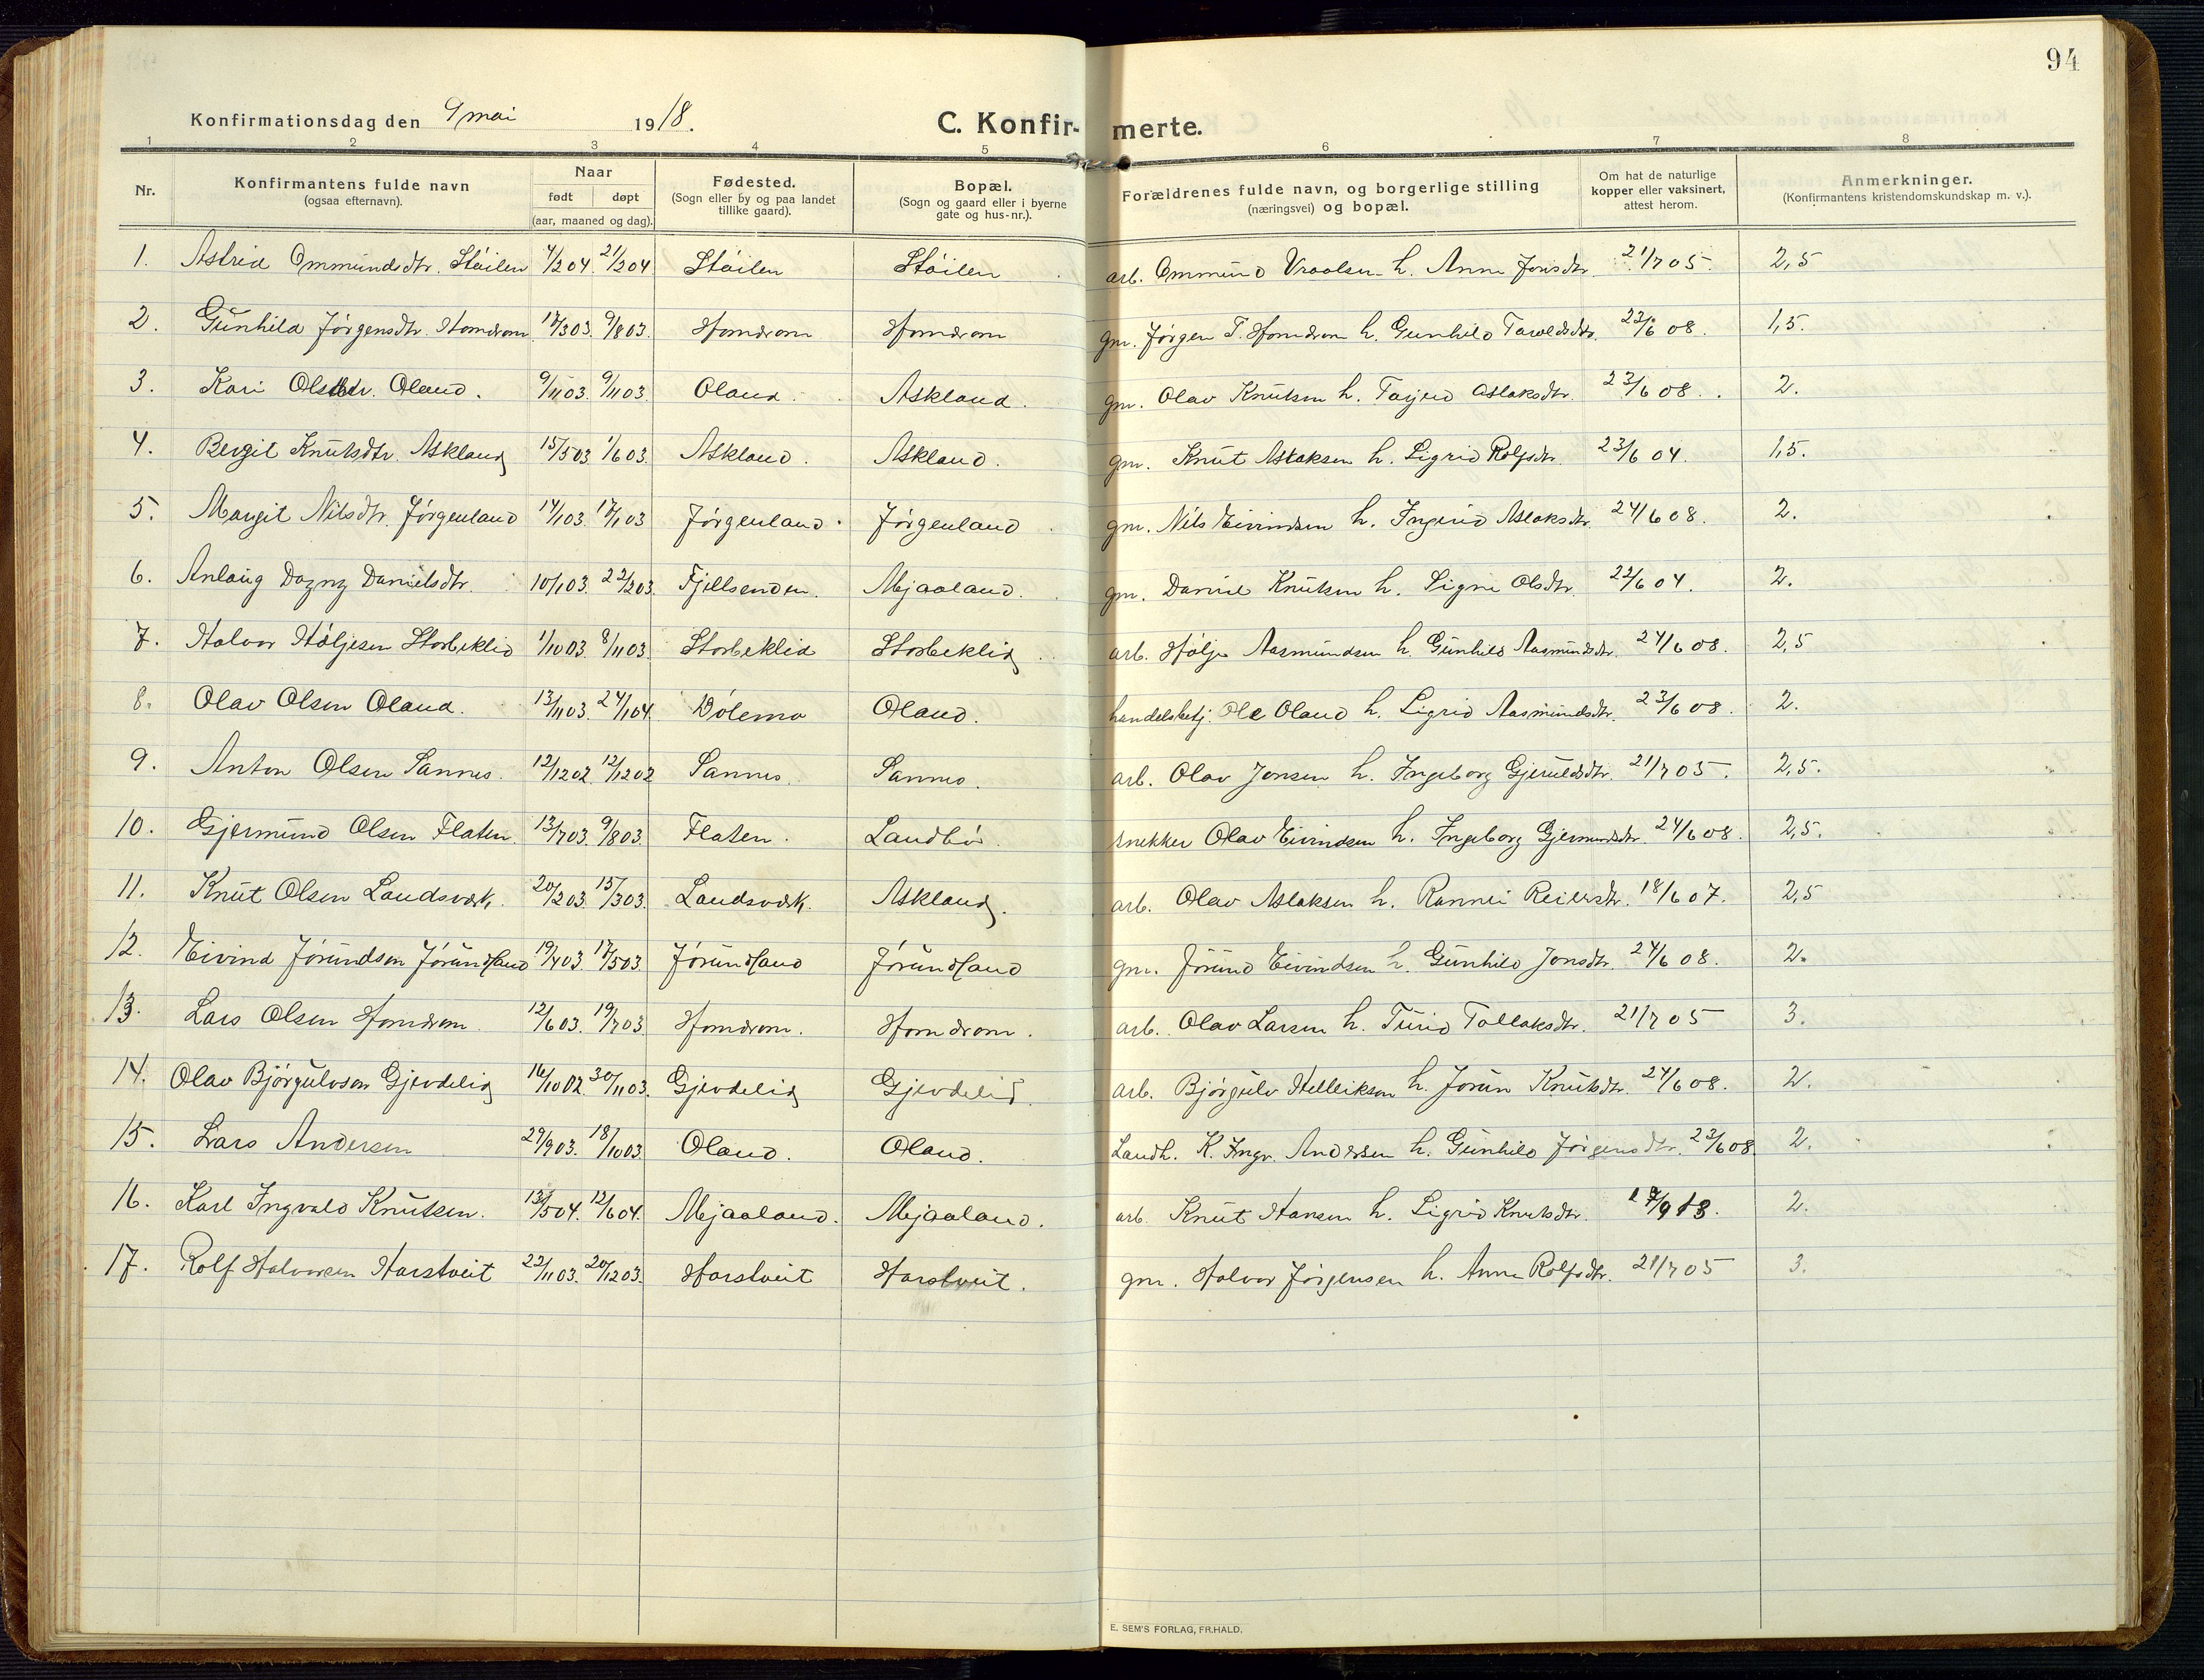 94
Konfirmationsdag den 9 mai 1918. C. Konfirmerte.
1 2 3 4 5 6 7 8
Nr. Konfirmantens fulde navn (ogsaa efternavn). Naar født døpt (aar, maaned og dag). Fødested. (Sogn eller by og paa landet tillike gaard). Bopæl. (Sogn og gaard eller i byerne gate og hus-nr.). Forældrenes fulde navn, og borgerlige stilling (næringsvei) og bopæl. Om hat de naturlige kopper eller vaksinert, attest herom. Anmerkninger. (Konfirmantens kristendomskundskap m. v.).
1. Astrid Ommundsdtr. Stóilen 4/2 04. 21/2 04 Stóilen Stóilen arb. Ommund Vraalsen h. Anne Jonsdtr. 21/7 05. 2,5
2. Gunhild Jørgensdtr. Homdrom 17/3 03. 9/8 03. Homdrom Homdrom gm. Jørgen T. Homdrom h. Gunhild Taraldsdtr. 23/6 08. 1,5.
3. Kari Olsdtr. Oland. 9/11 03. 9/11 03. Oland. Askland. gm. Olav Knutsen h. Tarjerd Aslaksdtr. 23/6 08. 2.
4. Bergit Knutsdtr. Askland 15/5 03 1/6 03. Askland. Askland. gm. Knut Aslaksen h. Sigrid Rolfsdtr. 23/6 04. 1,5.
5. Margit Nilsdtr. Jørgenland 14/1 03. 17/1 03 Jørgenland. Jørgenland gm. Nils Eivindsen h. Ingerid Aslaksdtr. 24/6 08. 2.
6. Anlaug Dagny Danielsdtr. 10/1 03. 22/2 03. Fjellsenden. Mjaaland. gm. Daniel Knutsen h. Signe Olsdtr. 22/6 04. 2.
7. Halvor Høljesen Storbeklid 1/10 03. 8/11 03. Storbeklid Storbeklid arb. Hølje Aasmundsen h. Gunhild Aasmundsdtr. 24/6 08. 2,5
8. Olav Olsen Oland. 13/11 03. 24/1 04. Dólemo Oland. handelsbetj. Ole Oland h. Sigrid Aasmundsdtr. 23/6 08. 2.
9. Anton Olsen Sannes. 12/12 02. 12/12 02 Sannes. Sannes. arb. Olav Jonsen h. Ingeborg Gjeruldsdtr. 21/7 05. 2,5.
10. Gjermund Olsen Flaten. 13/7 03. 9/8 03. Flaten. Landbó. snekker Olav Eivindsen h. Ingeborg Gjermundsdtr. 24/6 08. 2,5.
11. Knut Olsen Landsværk. 20/2 03. 15/3 03. Landsværk. Askland. arb. Olav Aslaksen h. Rannei Reiersdtr. 18/6 07. 2,5
12. Eivind Jórundsen Jórundland 19/4 03. 17/5 03. Jórundland Jórundland gm. Jórund Eivindsen h. Gunhild Jonsdtr. 24/6 08. 2.
13. Lars Olsen Homdrom. 12/6 03. 19/7 03. Homdrom. Homdrom. arb. Olav Larsen h. Turid Tallaksdtr. 21/7 05 3.
14. Olav Bjórgulvsen Gjevdelid 16/10 02. 30/11 03. Gjevdelid Gjevdelid. arb. Bjórgulv Helleiksen h. Jorun Knutsdtr. 24/6 08. 2.
15. Lars Andersen 29/9 03. 18/10 03. Oland. Oland. Landh. K. Ingv. Andersen h. Gunhild Jørgensdtr. 23/6 08 2.
16. Karl Ingvald Knutsen. 13/5 04. 12/6 04. Mjaaland. Mjaaland. arb. Knut Hansen h. Sigrid Knutsdtr. 17/9 18. 2.
17. Rolf Halvorsen Harstveit 22/11 03. 20/12 03. Harstveit Harstveit. gm. Halvor Jørgensen h. Anne Rolfsdtr. 21/7 05 3.
E. SEM'S FORLAG, FR.HALD.